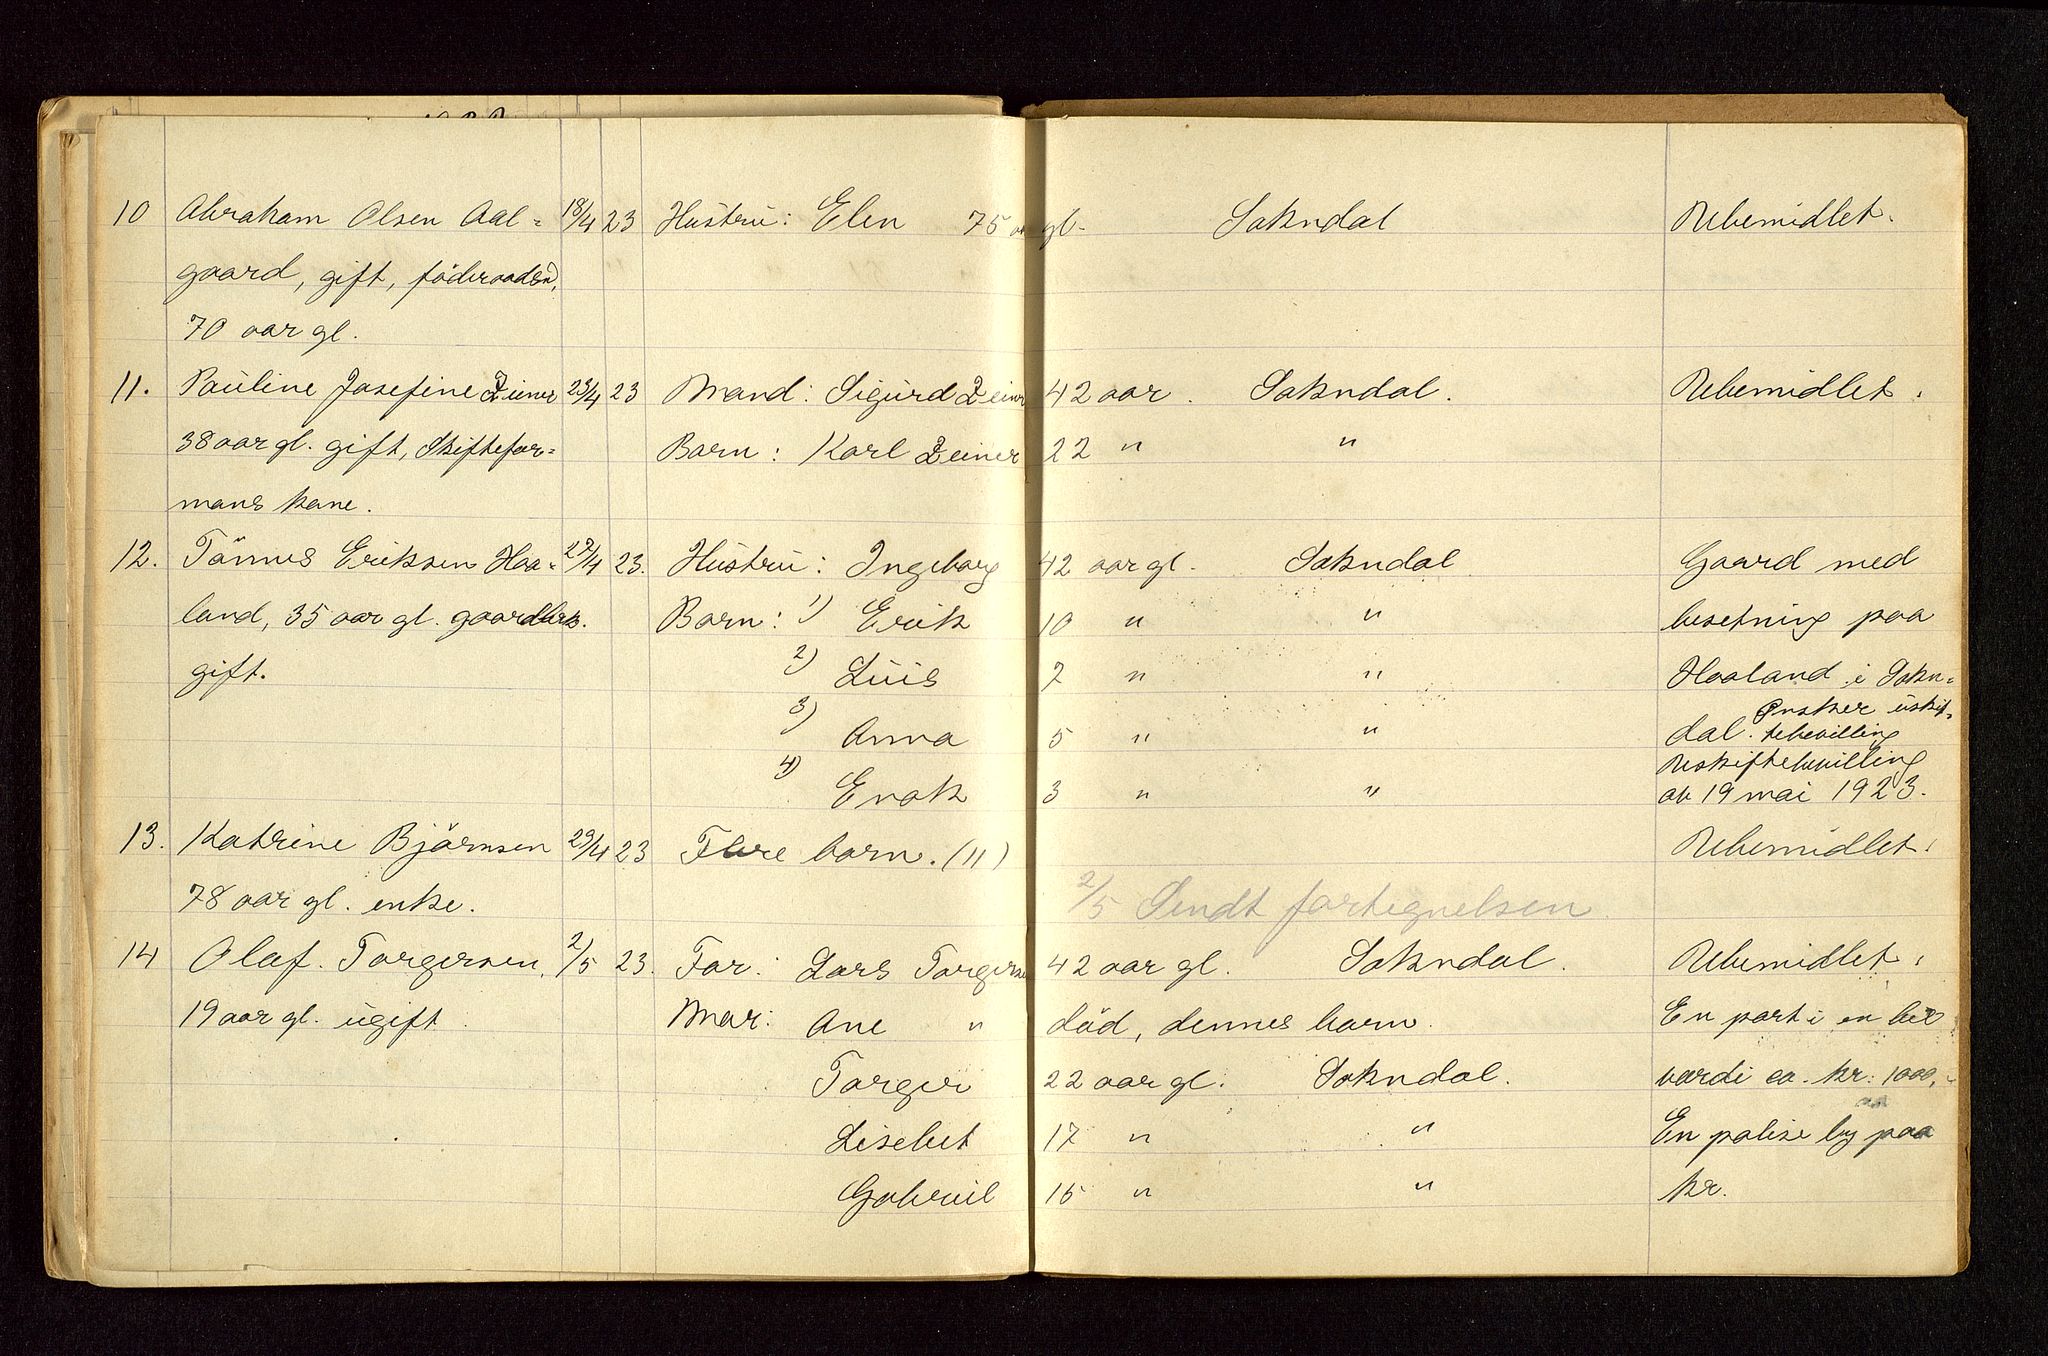 10 Abraham Olsen Aal= 18/4 23 Hustru: Elen 75 aar gl. Sokndal Ubemidlet.
gaard, gift, föderaadsm,
70 aar gl.
11. Pauline Josefine Zeiner 23/4 23 Mand: Sigurd Zeiner 42 aar. Sokndal. Ubemidlet.
38 aar gl. gift, Skiftefor= Barn: Karl Zeiner 22 " "
mans kone.
12. Tönnes Eriksen Haa= 27/4 23. Hustru: Ingeborg 42 aar gl. Sokndal Gaard med
land, 35 aar gl. gaardbrk. Barn: 1) Erik 10 " " besetning paa
gift. 2) Luis 7 " " Haaland i Sokn=
Ønsker uskif=
3) Anna 5 " " dal. tebevilling
Uskiftebevilling
4) Enok 3 " " av 19 mai 1923.
13. Katrine Björnsen 29/4 23 Flere barn. (11) Ubemidlet.
78 aar gl. enke. 2/5 Sendt fortegnelsen.
14 Olaf Torgersen, 2/5 23. Far: Lars Torgersen 42 aar gl. Sokndal. Ubemidlet.
19 aar gl. ugift. Mor: Ane " död, dennes barn. En part i en bil
Torger 22 aar gl. Sokndal. værdi ca. kr. 1000,-
Lisebet 17 " " En polise lyg paa
Gabriel 15 " " kr.